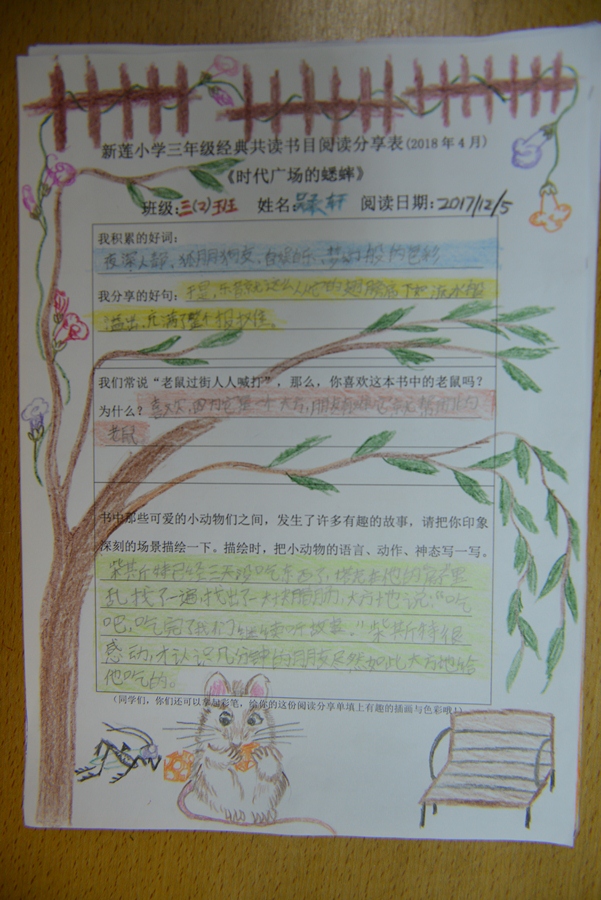 新莲小学三年级经典共读书目阅读分享表(2018年4月)
《时代广场的蟋蟀》
班级:三(2)班 姓名: 轩 阅读日期:2017/12/5
我积累的好词:
夜深人静、狐朋狗友、自娱自乐、梦幻般的色彩
我分享的好句:于是,乐音就这么从他的翅膀底下如流水般
溢出,充满了整个报摊。
我们常说“老鼠过街人人喊打”,那么,你喜欢这本书中的老鼠吗?
为什么?喜欢,因为它是一个大方,朋友有难它就
老鼠
书中那些可爱的小动物们之间,发生了许多有趣的故事,请把你印象
深刻的场景描绘一下。描绘时,把小动物的语言、动作、神态写一写。
柴斯特已经三天没吃东西了,塔克在他的窝里
乱找了一通,找出了一大块腊肠,大方地说:“吃
吧,吃完了我们继续听故事。”柴斯特很
感动,才认识几分钟的朋友居然如此大方地给
他吃的。
(同学们,你们还可以拿起彩笔,给你的这份阅读分享单填上有趣的插画与色彩哦!)